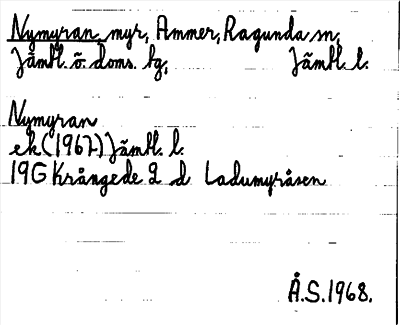 Nymyran, myr, Ammer, Ragunda sn,
Jämtl. ö. doms. tg, Jämtl. l.
Nymyran
ek (1967) Jämtl. l.
19G Krångede 2 d Ladumyråsen
Å.S. 1968.